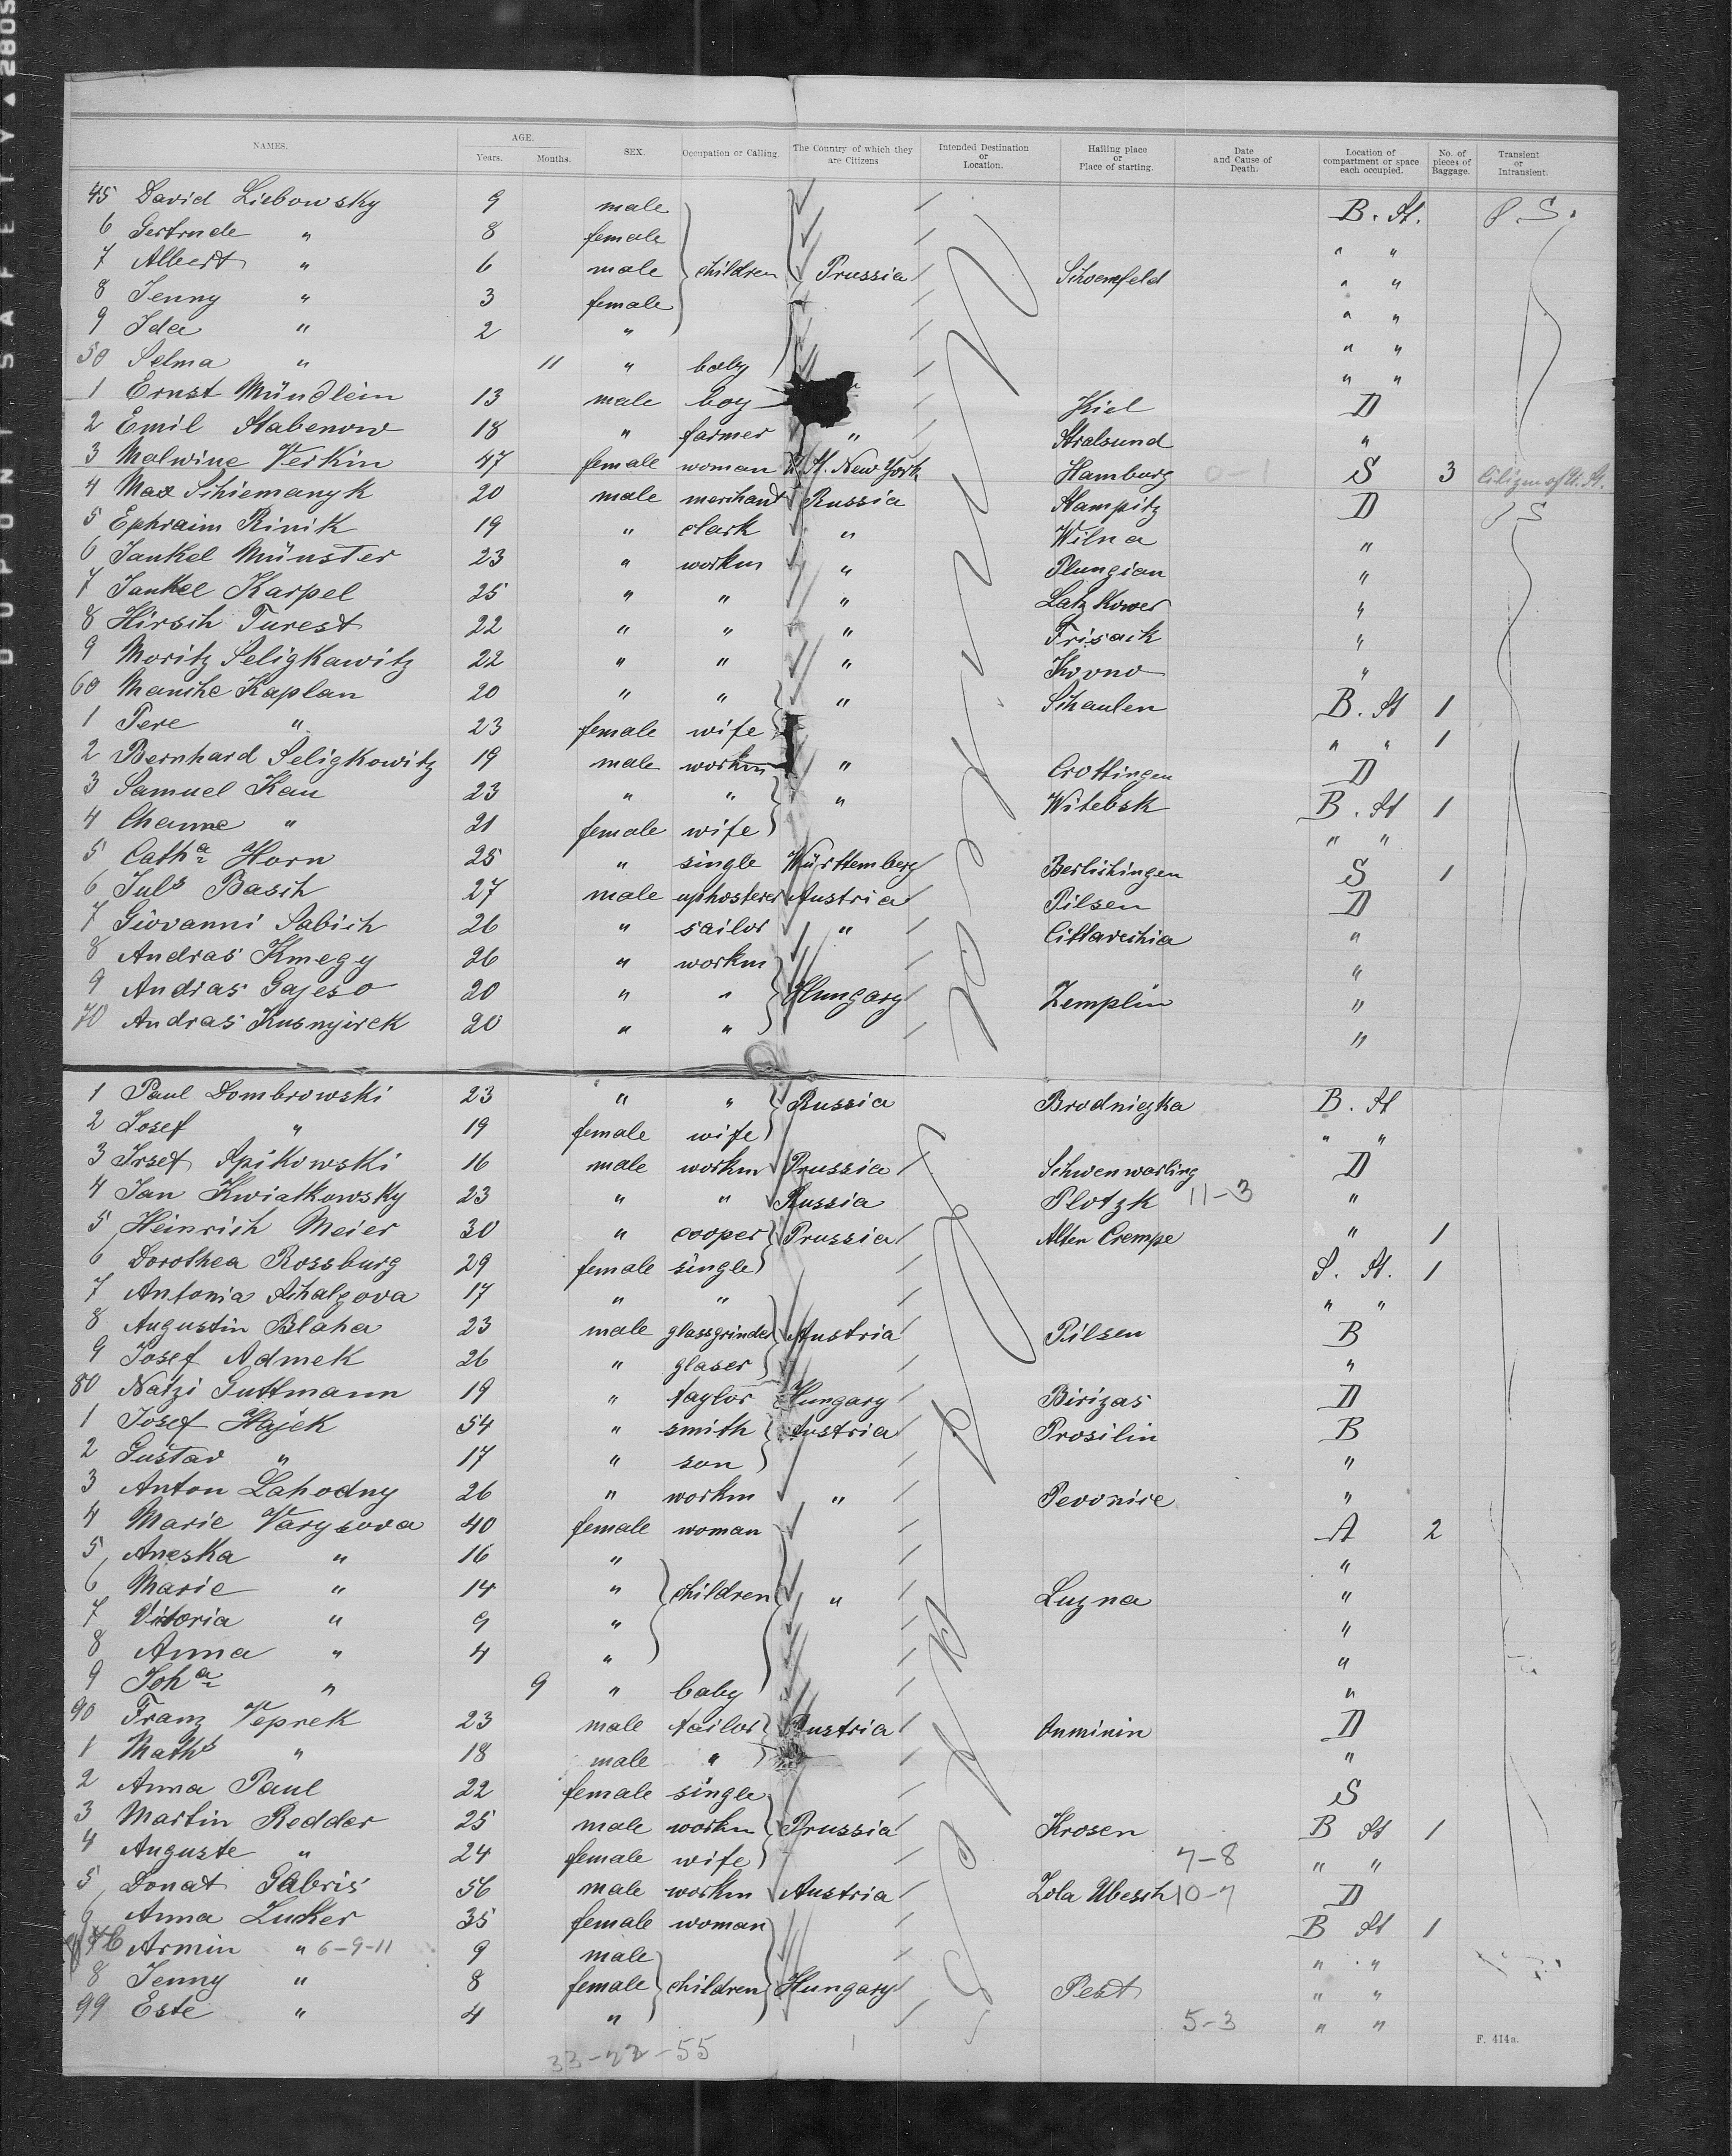 DUPONT SAFETY ▲ 2805
NAMES. AGE. Years. Months. SEX. Occupation or Calling. The Country of which they are Citizens Intended Destination or Location. Hailing place or Place of starting. Date and Cause of Death. Location of compartment or space each occupied. No. of pieces of Baggage. Transient or Intransient.
45 David Liebowsky 9 male B. St. P. S.
6 Gertrude " 8 female " "
7 Albert " 6 male children Prussia Schoenfeld " "
8 Jenny " 3 female " "
9 Ida " 2 " " "
50 Selma " 11 " baby " "
1 Ernst Mündlein 13 male boy Kiel D
2 Emil Stabenow 18 " farmer " Stralsund "
3 Malwine Verkin 47 female woman New York Hamburg 0-1 S 3 Citizen of U. St.
4 Max Schiemanyk 20 male merchant Russia Stampitz D P S
5 Ephraim Rinik 19 " clark " Wilna "
6 Jankel Münster 23 " workm " Plungian "
7 Jankel Karpel 25 " " " Latzkower "
8 Hirsch Turest 22 " " " Frisack "
9 Moritz Seligkawitz 22 " " " Kovno "
60 Manche Kaplan 20 " " " Schaulen B. St 1
1 Pere " 23 female wife " " 1
2 Bernhard Seligkowitz 19 male workm " Crottingen D
3 Samuel Kan 23 " " " Witebsk B. St 1
4 Channe " 21 female wife " "
5 Catha Horn 25 " single Württemberg Berlichingen S 1
6 Juls Basch 27 male uphosterer Austria Pilsen D
7 Giovanni Sabich 26 " sailor " Cittavechia "
8 Andras Kmegy 26 " workm "
9 Andras Gajeso 20 " " Hungary Zemplin "
70 Andras Kusnyirek 20 " " "
1 Paul Dombrowski 23 " " Russia Brodniezka B. St
2 Josef " 19 female wife " "
3 Josef Spikowski 16 male workm Prussia Schwenwarling D
4 Jan Kwiatkowsky 23 " " Russia Plotzk 11-3 "
5 Heinrich Meier 30 " cooper Prussia Alten Crempe " 1
6 Dorothea Rossburg 29 female single S. St. 1
7 Antonia Schalzova 17 " " " "
8 Augustin Blaha 23 male glassgrinder Austria Pilsen B
9 Josef Admek 26 " glaser "
80 Natzi Guttmann 19 " taylor Hungary Birizas D
1 Josef Hajek 54 " smith Austria Prosilin B
2 Gustav " 17 " son "
3 Anton Lahodny 26 " workm " Pevonice "
4 Marie Varysova 40 female woman A 2
5 Aneska " 16 " "
6 Marie " 14 " children " Luzna "
7 Vitoria " 9 " "
8 Anna " 4 " "
9 Joha " 9 " baby "
90 Franz Veprek 23 male tailor Austria Onminin D
1 Maths " 18 male " "
2 Anna Paul 22 female single S
3 Martin Redder 25 male workm Prussia Krosen B St 1
4 Auguste " 24 female wife 7-8 " "
5 Donat Gabris 56 male workm Austria Zola Ubesch 10-7 D
6 Anna Zucker 35 female woman B St 1
Armin " 6-9-11 9 male " "
8 Jenny " 8 female children Hungary Pest " "
99 Este " 4 " 5-3 " "
33-22-55
F. 414a.